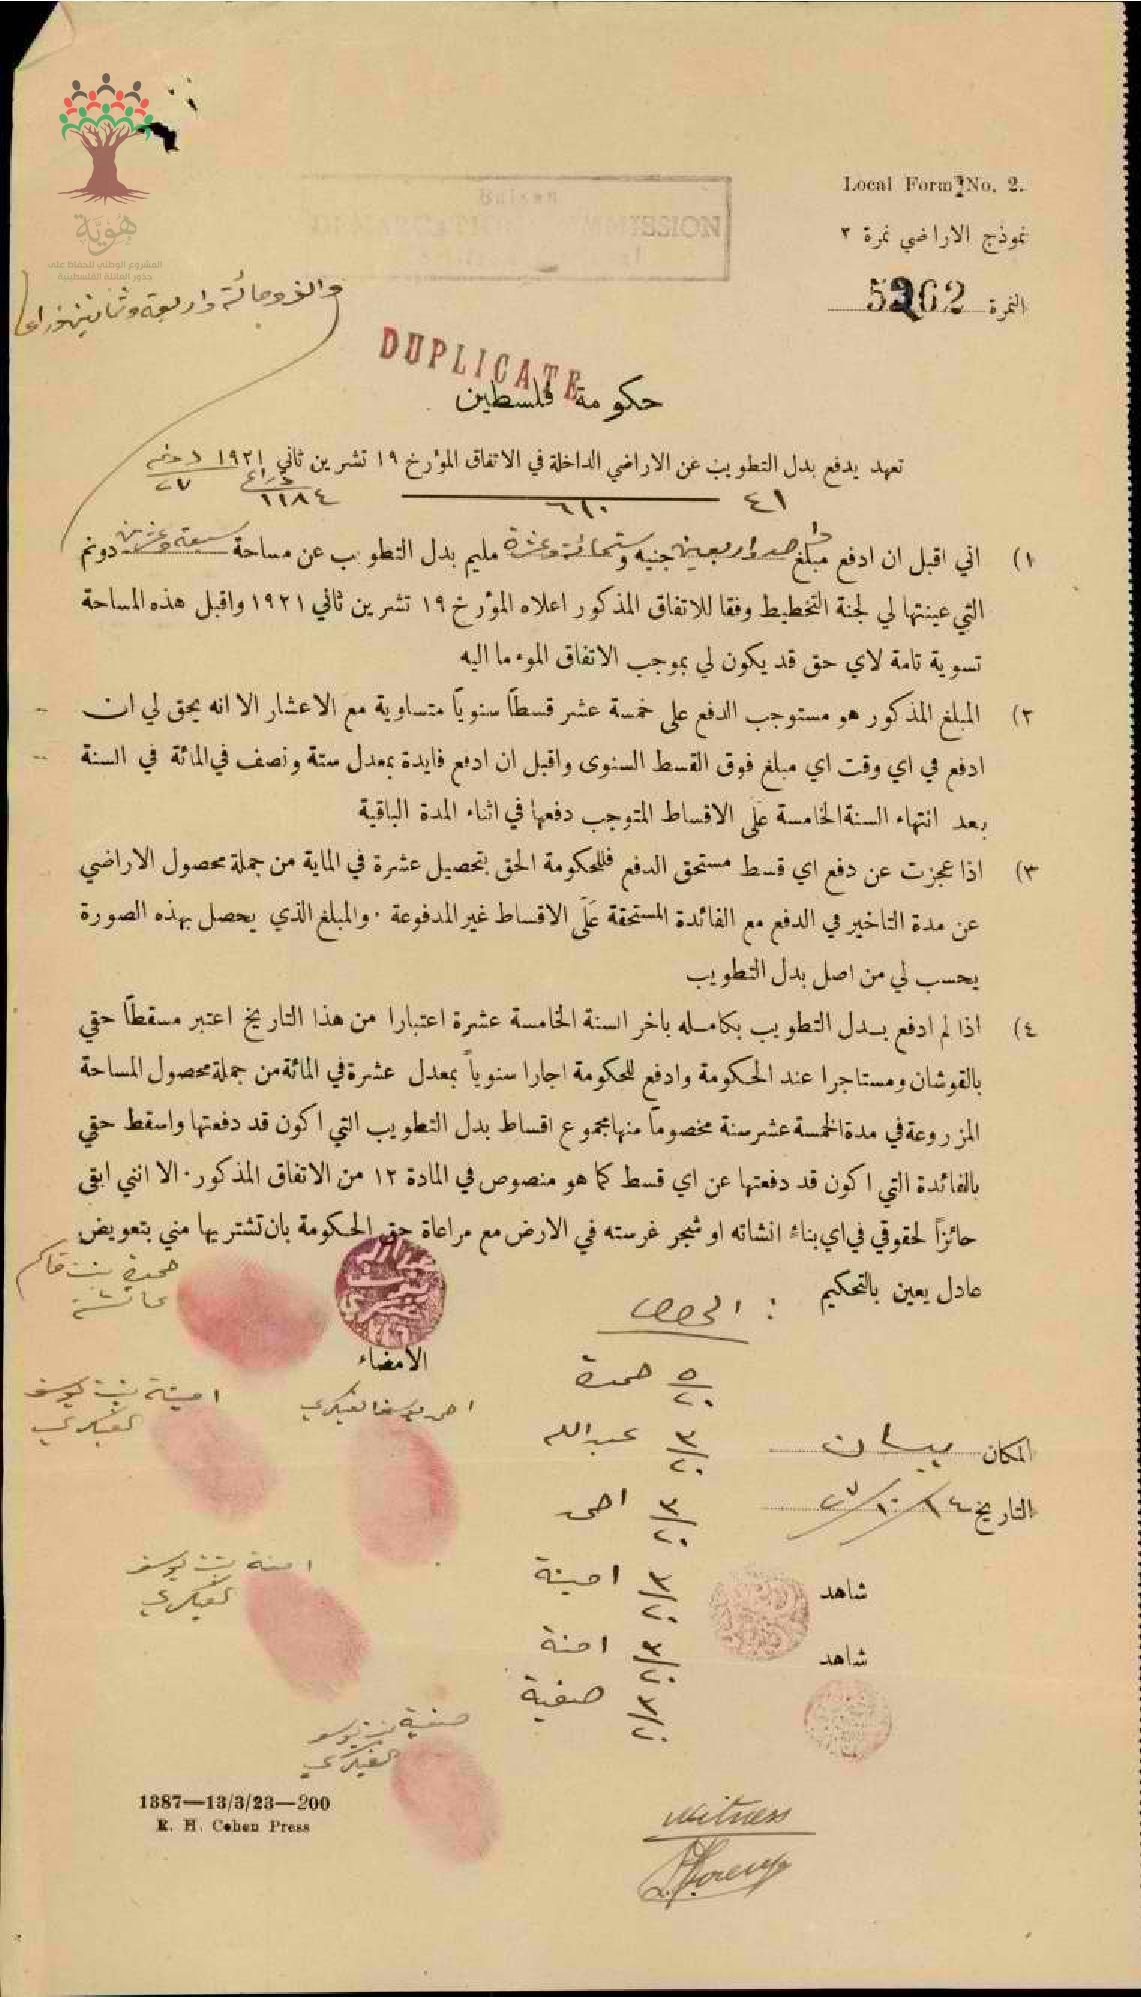 هُوِيَّة
المشروع الوطني للحفاظ على
جذور العائلة الفلسطينية
Beisan
DEMARCATION COMMISSION
Local Form No. 2.
نموذج الاراضي نمرة ٢
النمرة 5262
والف ومائة واربعة وثمانين ذراعا
DUPLICATE
حكومة فلسطين
تعهد يدفع بدل التطويب عن الاراضي الداخلة في الاتفاق المؤرخ ١٩ تشرين ثاني ١٩٢١
دونم ذراع
٤١ ٦١٠ ١١٨٤ ٢٧
١) اني اقبل ان ادفع مبلغ واحد واربعين جنيه وستمائة وعشرة مليم بدل التطويب عن مساحة سبعة وعشرين دونم
التي عينتها لي لجنة التخطيط وفقا للاتفاق المذكور اعلاه المؤرخ ١٩ تشرين ثاني ١٩٢١ واقبل هذه المساحة
تسوية تامة لاي حق قد يكون لي بموجب الاتفاق الموء ما اليه
٢) المبلغ المذكور هو مستوجب الدفع على خمسة عشر قسطًا سنويًا متساوية مع الاعشار الا انه يحق لي ان
ادفع في اي وقت اي مبلغ فوق القسط السنوى واقبل ان ادفع فايدة بمعدل ستة ونصف في المائة في السنة
بعد انتهاء السنة الخامسة عَلَى الاقساط المتوجب دفعها في اثناء المدة الباقية
٣) اذا عجزت عن دفع اي قسط مستحق الدفع فللحكومة الحق بتحصيل عشرة في الماية من جملة محصول الاراضي
عن مدة التاخير في الدفع مع الفائدة المستحقة عَلَى الاقساط غير المدفوعة ٠ والمبلغ الذي يحصل بهذه الصورة
يحسب لي من اصل بدل التطويب
٤) اذا لم ادفع بدل التطويب بكامله باخر السنة الخامسة عشرة اعتبارا من هذا التاريخ اعتبر مسقطًا حقي
بالقوشان ومستاجرا عند الحكومة وادفع للحكومة اجارا سنوياً بمعدل عشرة في المائة من جملة محصول المساحة
المزروعة في مدة الخمسة عشر سنة مخصوماً منها مجموع اقساط بدل التطويب التي اكون قد دفعتها واسقط حقي
بالفائدة التي اكون قد دفعتها عن اي قسط كما هو منصوص في المادة ١٢ من الاتفاق المذكور ٠ الا انني ابقى
حائزًا لحقوقي في اي بناء انشاته او شجر غرسته في الارض مع مراعاة حق الحكومة بان تشتريها مني بتعويض
عادل يعين بالتحكيم
حمدة بنت قاسم
الحصص :
الامضاء
٥/٢٠ حمدة
امينة بنت يوسف
٣/٢٠ عبدالله
المكان بيسان
٣/٢٠ احمد
التاريخ ١٤/١٠/٢٧
امنة بنت يوسف
٣/٢٠ امينة
شاهد
٣/٢٠ امنة
شاهد
٣/٢٠ صفية
صفية بنت يوسف
1387—13/3/23—200
R. H. Cohen Press
witness